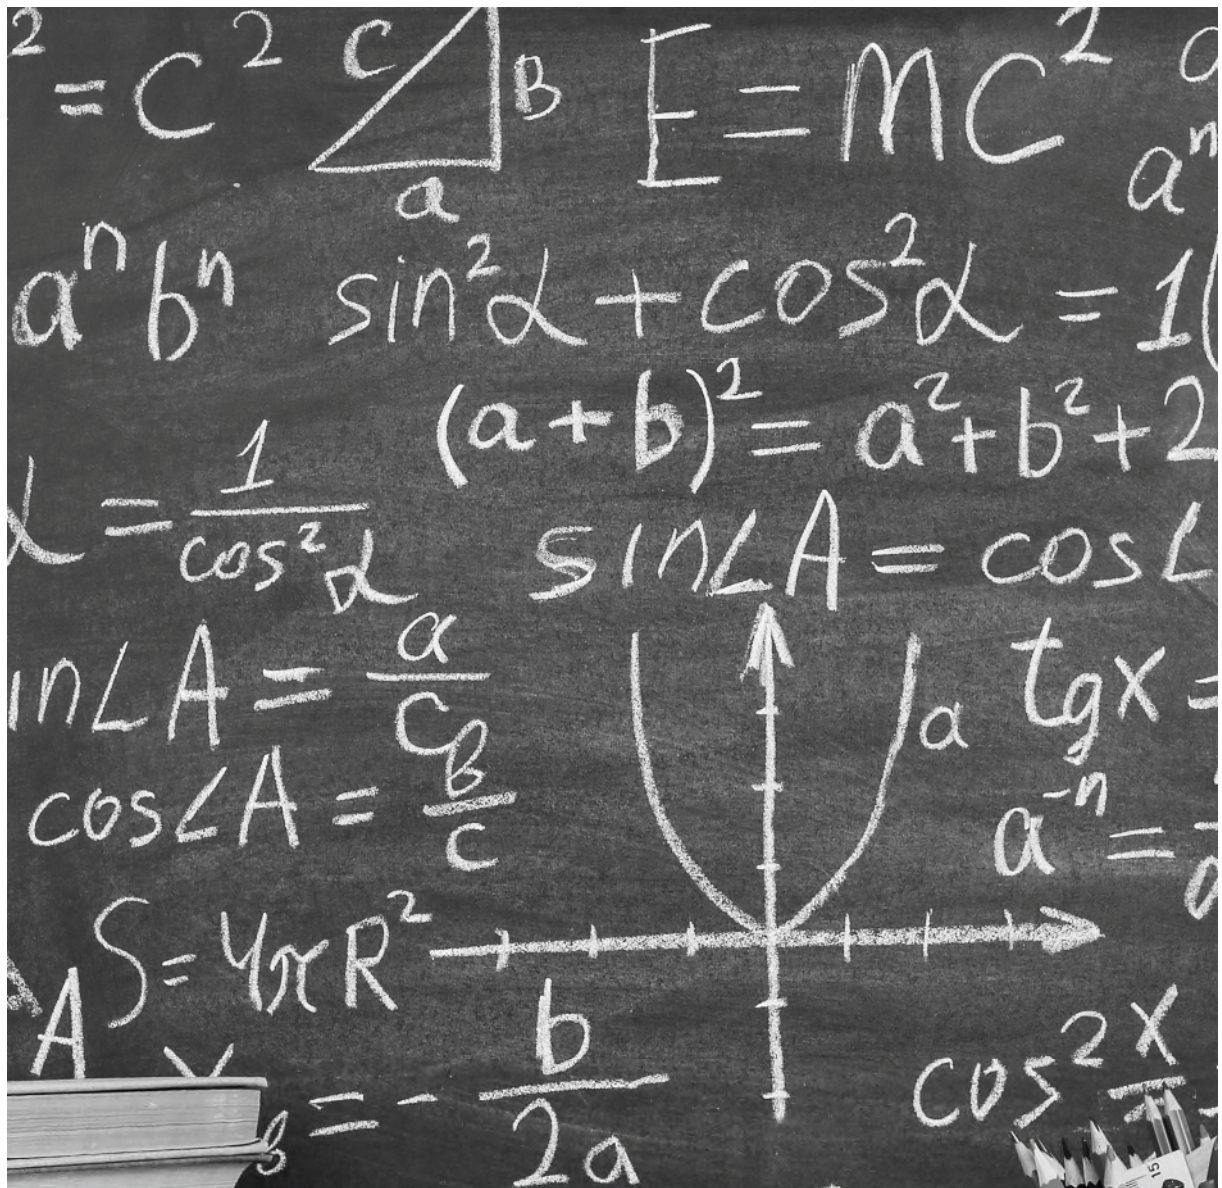 ² = C² C B E = MC²
a
aⁿ
aⁿbⁿ sin²α + cos²α = 1(
(a + b)² = a² + b² + 2
α = 1/cos²α
sin∠A = cos∠
in∠A = a/c
a tgx =
cos∠A = B/c
a⁻ⁿ =
S = 4πR²
A
= - b/2a
cos² x
15